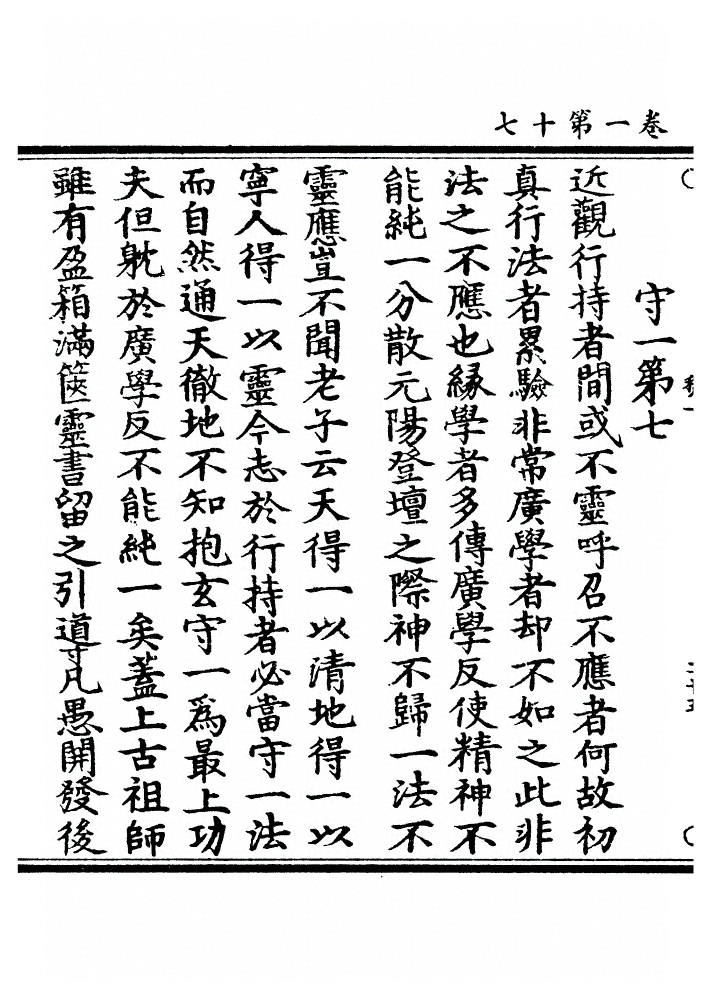 卷一第十七
守一第七
近觀行持者間或不靈呼召不應者何故初
真行法者累驗非常廣學者却不如之此非
法之不應也緣學者多傳廣學反使精神不
能純一分散元陽登壇之際神不歸一法不
靈應豈不聞老子云天得一以清地得一以
寧人得一以靈今志於行持者必當守一法
而自然通天徹地不知抱玄守一為最上功
夫但躭於廣學反不能純一矣蓋上古祖師
雖有盈箱滿篋靈書留之引導凡愚開發後